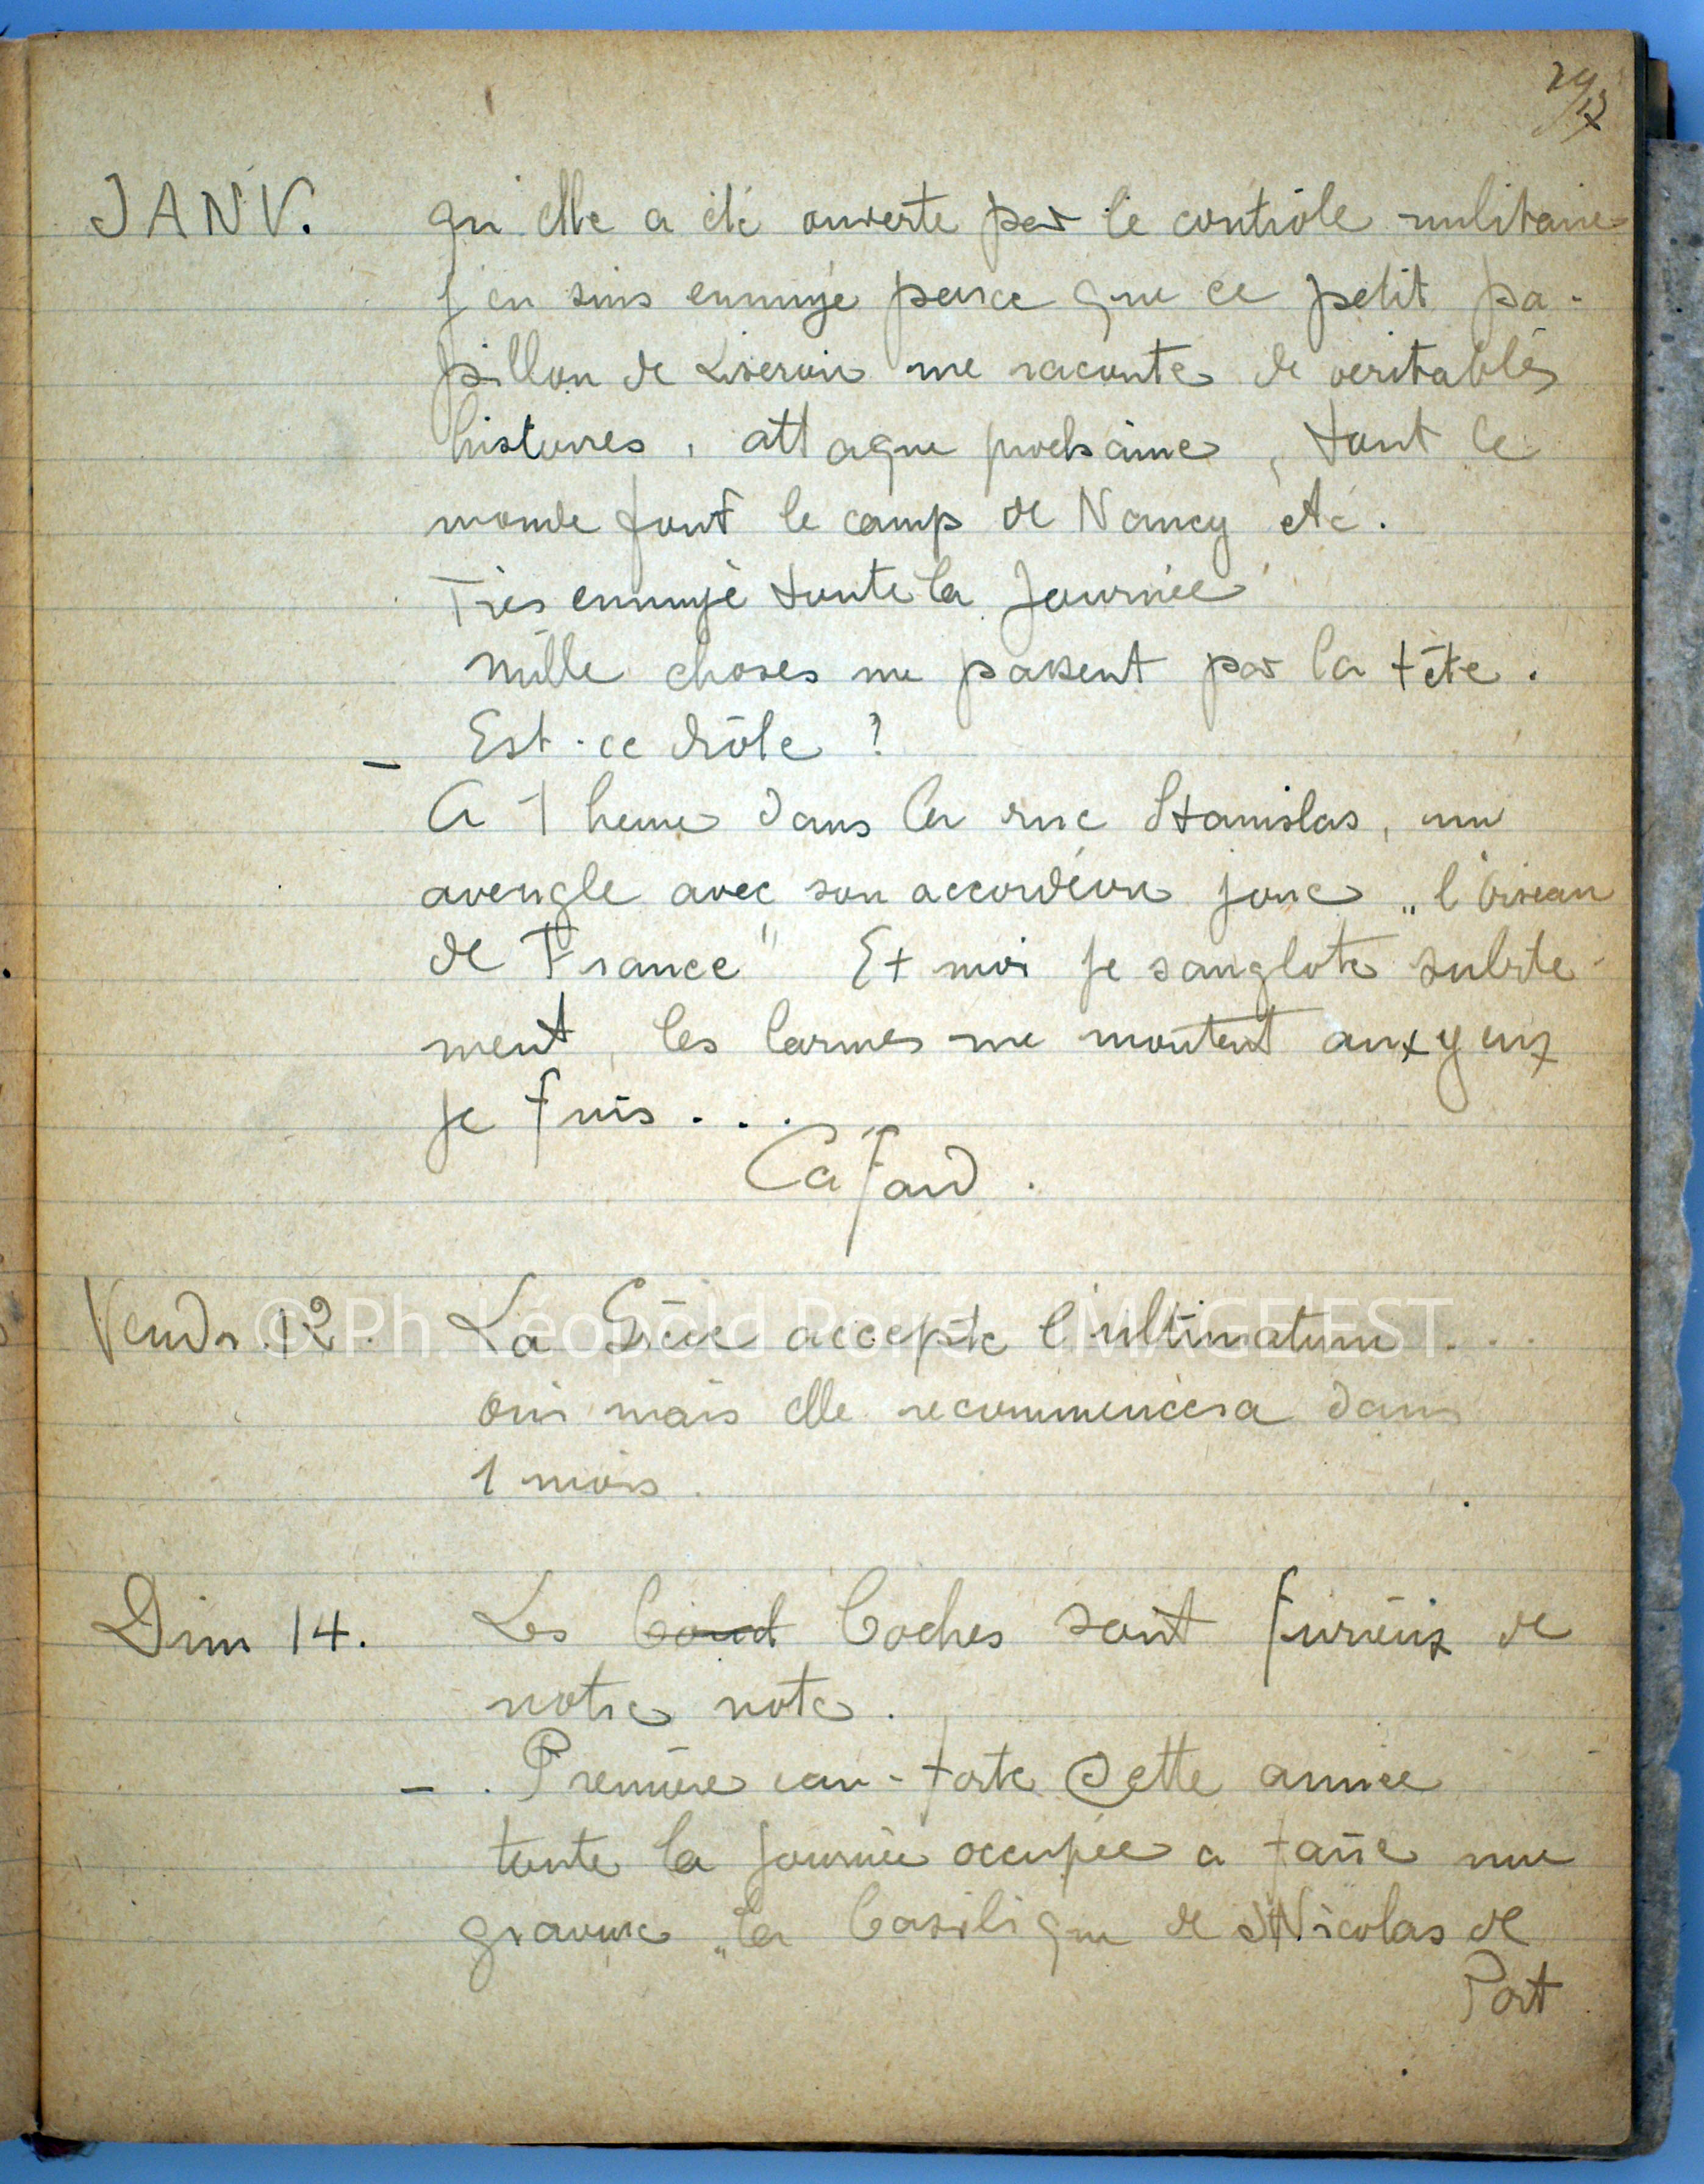 JANV.
qu'elle a été ouverte par le contrôle militaire
j'en suis ennuyé parce que ce petit pa-
pillon de Liseron me raconte de veritables
histoires, attaque prochaine, tout le
monde fout le camp de Nancy etc.
Très ennuyé toute la journée
Mille choses me passent par la tête.
– Est-ce drôle ?
A 1 heure dans la rue Stanislas, un
aveugle avec son accordéon joue „l'Oiseau
de France" Et moi je sanglote subite-
ment, les larmes me montent aux yeux
je fuis ....
Cafard.
Vendr. 12. La Grèce accepte l'ultimatum ...
oui mais elle recommencera dans
1 mois.
Dim 14. Les Boches sont furieux de
notre note.
– . Première eau-forte cette année
toute la journée occupée a faire une
gravure „la basilique de St Nicolas de
Port
© Ph. Léopold Poiré IMAGE'EST